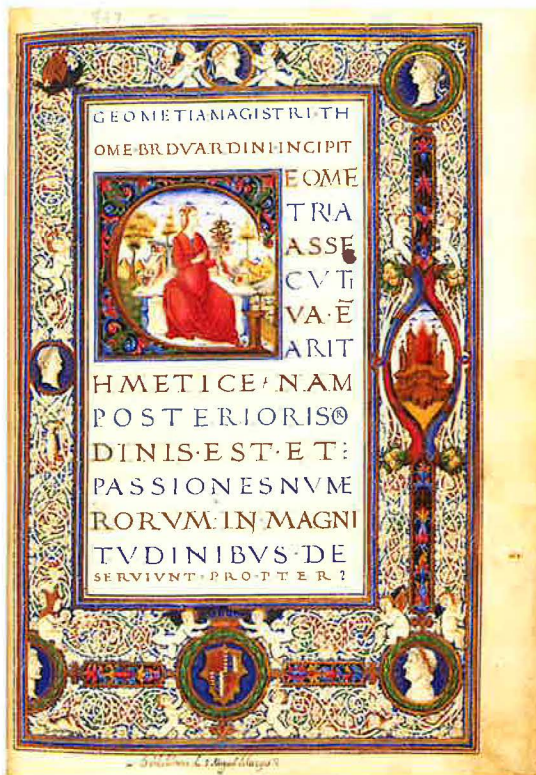 GEOMETIA·MAGISTRI·TH
OME·BRDVARDINI·INCIPIT
GEOME
TRIA
ASSE
CVTI
VA·Ē
ARIT
HMETICE·NAM
POSTERIORIS
DINIS·EST·ET:
PASSIONES NVME
RORVM·IN·MAGNI
TVDINIBVS·DE
SERVIVNT·PROPTER